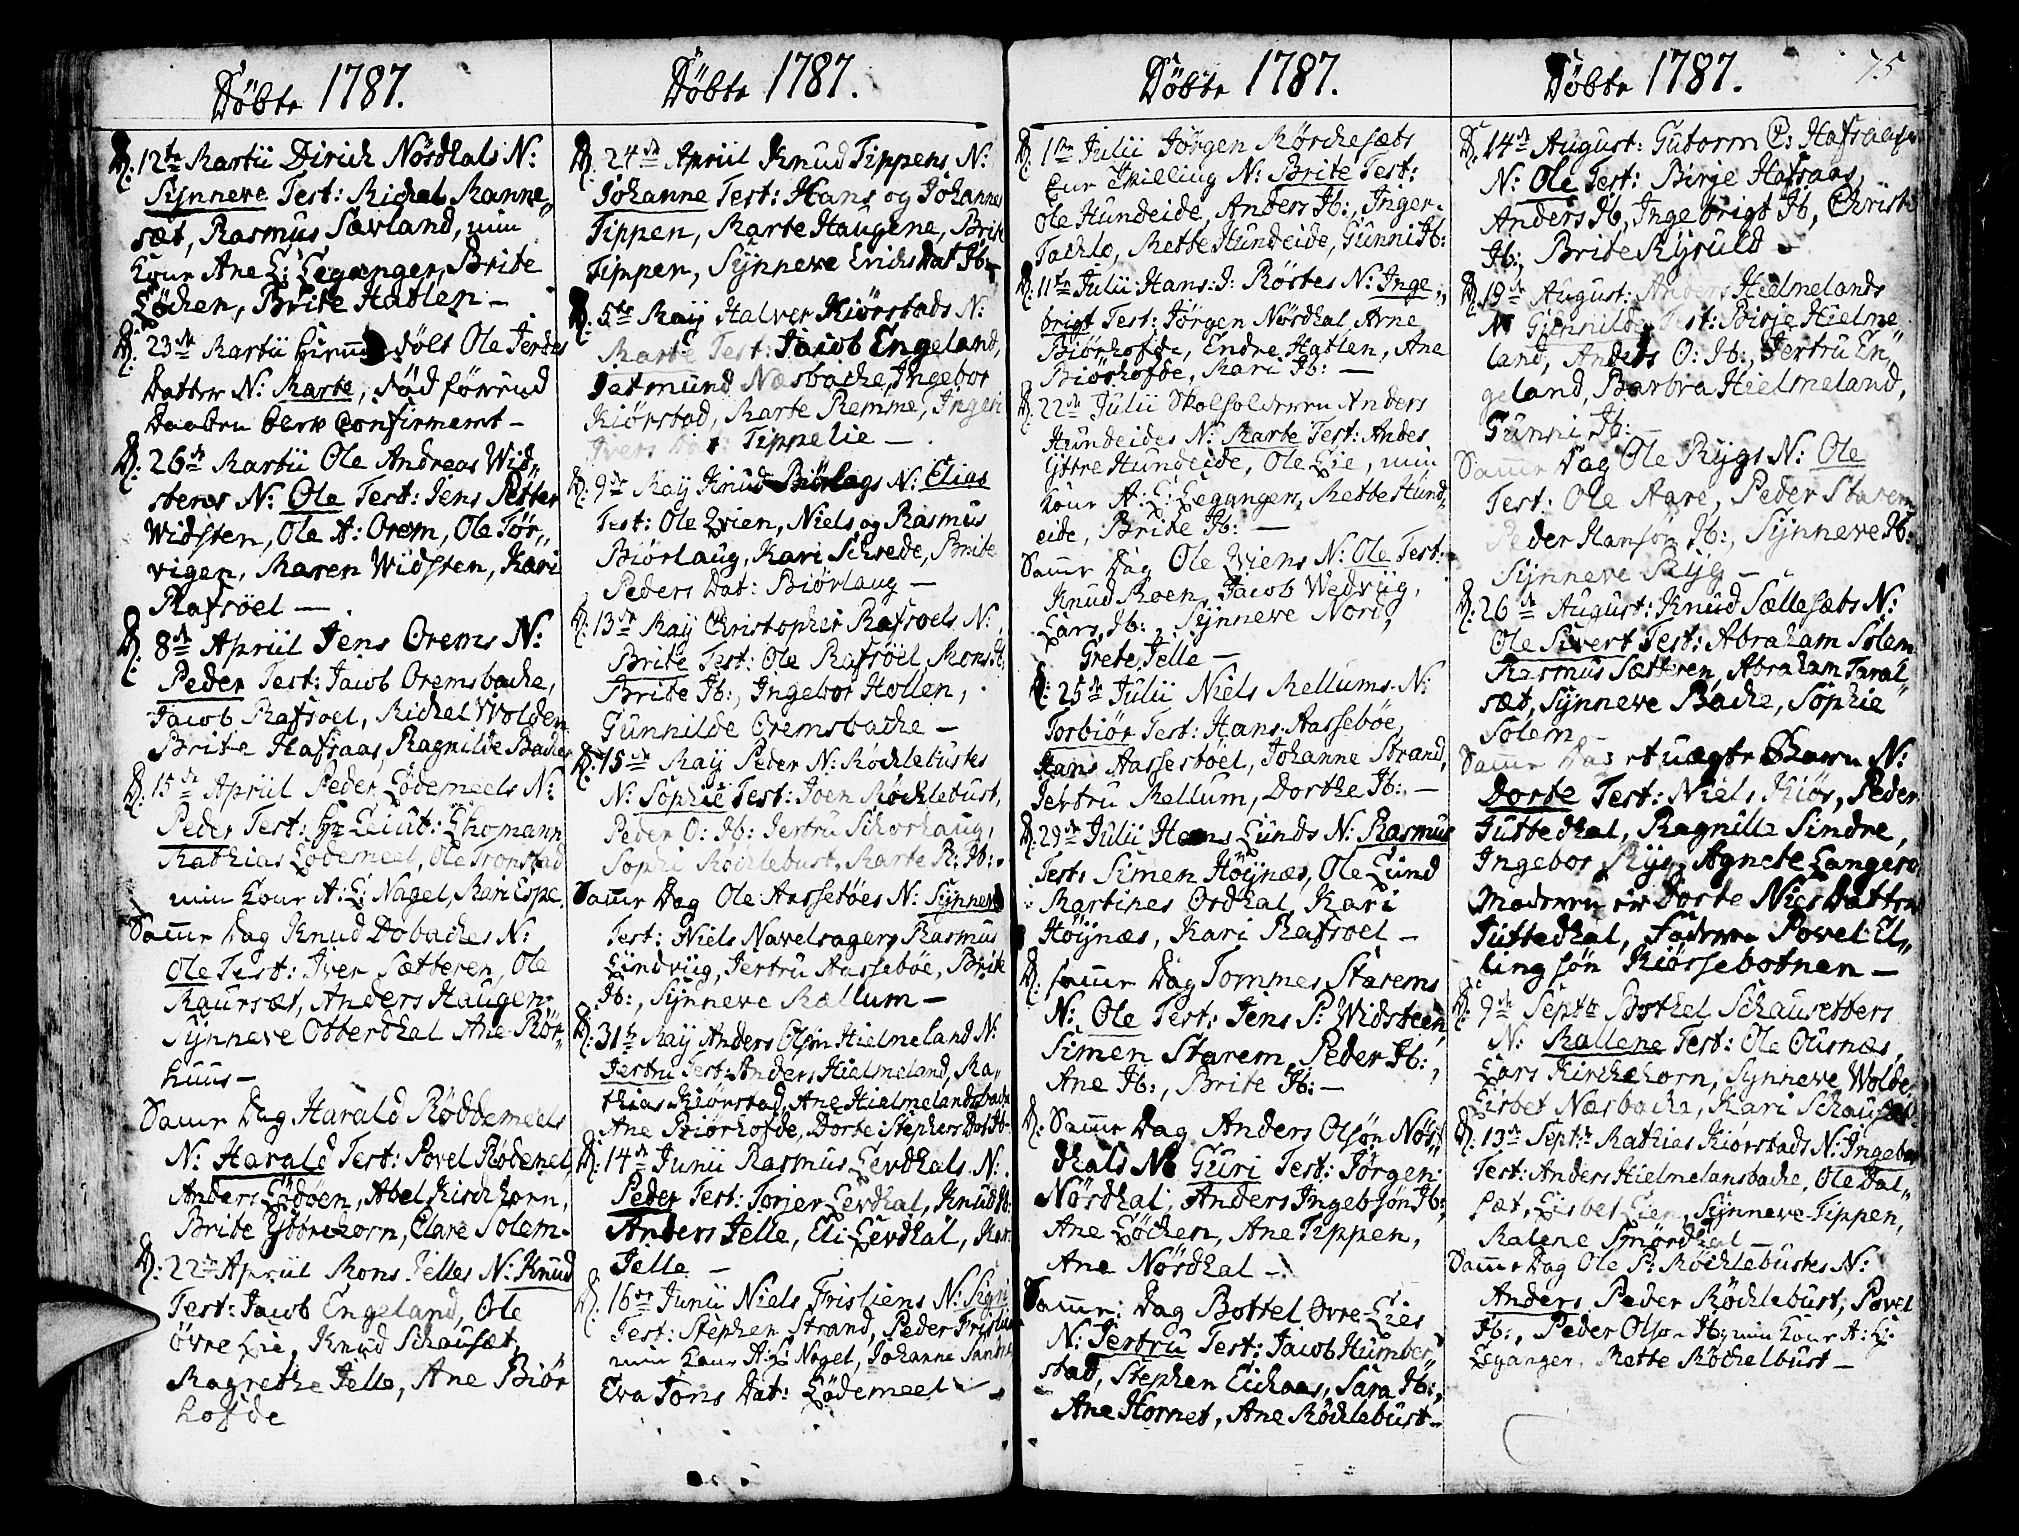 Döbte 1787.
D: 12te Martii Dirich Nördhals N:
Synneve Test: Michel Manne„
sæt, Rasmus Sævland, min
Kone Ane L: Leganger, Brite
Löchen, Brite Hatlen –
D: 23de Martii Jölt Ole Jerdes
Datter N: Marte, Död förend
Daaben blev Confirmert –
D: 26de Martii Ole Andreas Wid„
stens N: Ole Test: Jens Petter
Widsten, Ole A: Orem, Ole Tör„
vigen, Maren Widsten, Kari
Rafsöel –
D: 8de April Jens Orems N:
Peder Test: Jacob Oremsbacke,
Jacob Rafsoel, Michel Wolden
Brite Hafsaas, Ragnilde Backe
D: 15de April Peder Lödemeels N:
Peder Test: Hr Leiut: Thomann
Mathias Lødemeel, Ole Tronstad
min Kone A: L: Nagel, Mari Espe.
Samme Dag Knud Dobackes N:
Ole Test: Iver Sætteren, Ole
Maursæt, Anders Haugen
Synneve Otterdhal Ane Röt„
huus –
Samme Dag Harald Röddemeels
N: Harald Test: Povel Rödemel,
Anders Lödöen, Abel Kirchhorn,
Brite Kirchhorn, Clare Solem.
D: 22de April Mons Jelles N: Knud
Test: Jacob Engeland, Ole
Övre Lie, Knud Schausæt,
Magrethe Jelle, Ane Biör
hofde
Döbte 1787.
D: 24de April Knud Tippens N:
Johanne Test: Hans og Johanne
Tippen, Marte Haugene, Brite
Tippen, Synneve Erichs Dat Ib: –
D: 5te Maij Halver Kiörstads N:
Marte Test: Jacob Engeland,
Jetmund Næsbacke, Ingebor
Kiörstad, Marte Remme, Ingeb
Ivers Dat Tippelie –
D: 9de Maij Knud Biörlags N: Elias
Test: Ole Qvien, Niels og Rasmus
Biörlaug, Kari Schrede, Brite
Peders Dat: Biörlaug –
D: 13de Maij Christopher Rafsoels N:
Brite Test: Ole Rafsöel, Mons Ib:
Brite Ib:, Ingebor Hollen,
Gunnilde Oremsbacke –
D: 15de Maij Peder N: Röchlebustes
N: Sophie Test: Joen Röchlebust,
Peder O: Ib: Jertru Schorhaug,
Sophi Röchlebust, Marte R: Ib:
Samme Dag Ole Aassetöes N: Synneve
Test: Niels Navelsager, Rasmus
Lindviig, Jertru Aassebøe, Brite
Ib:, Synneve Mællum –
D: 31te Maij Anders Olsön Hielmeland N:
Jertru Test: Anders Hielmeland, Ma„
thias Kiörstad, Ane Hielmelandsbache
Ane Biörhofde, Dorte Stephens Dat Ib:
D: 14de Junii Rasmus Levdhals N:
Peder Test: Torjer Levdhal, Knud Ib:
Anders Jelle, Eli Levdhal, Mar
Jelle –
D: 16de Junii Niels Frisliens N: Sigri
Test: Stephen Strand, Peder Frislie
min Kone A: L: Nagel, Johanne
Eva Tons Dat: Lödemeel –
Döbte 1787.
D: 1te Julii Jörgen Mörchesæts
Eur Skilling N: Brite Test:
Ole Hundeide, Anders Ib:, Inger
Tachlo, Mette Hundeide, Gunni Ib:
D: 11te Julii Hans: J: Röstes N: Inge„
brigt Test: Jörgen Nördhal, Arne
Biörhofde, Endre Hatlen, Ane
Biörhofde, Kari Ib: –
D: 22de Julii Skolholderen Anders
Hundeides N: Marte Test: Andes
Yttre Hundeide, Ole Lie, min
Kone A: L: Leganger, Mette Hund„
eide, Brite Ib: –
Samme Dag Ole Qviens N: Ole Test:
Knud Moen, Jacob Wedviig,
Lars Ib:, Synneve Nord,
Grete Jelle –
D: 25de Julii Niels Mellums N:
Torbiör Test: Hans Aassebøe,
Hans Aassestöel, Johanne Strand,
Jertru Mellum, Dorthe Ib: –
D: 29de Julii Hans Lunds N: Rasmus
Test: Simen Höynæs, Ole Lund
Martines Ordhal, Kari
Höynæs, Kari Rafsoel –
D: samme Dag Tommes Starems
N: Ole Test: Jens P: Widsteen,
Simen Starem, Peder Ib:,
Ane Ib:, Brite Ib: –
D: Samme Dag Anders Olsön Nös
dhals N: Guri Test: Jörgen
Nördhal, Anders Ingebsön Ib:,
Ane Löchen, Ane Tippen,
Ane Nördhal –
Samme: Dag Bottel Övre Lies
N: Jertru Test: Jacob Humber„
stad, Stephen Eichaas, Sara Ib:,
Ane Hornet, Ane Röchlebust –
Döbte 1787.
75
D: 14de August: Gutorm C: Hafsaas
N: Ole Test: Birje Hafsaas,
Anders Ib, Ingebrigt Ib, Christi
Ib:, Brite Myruld –
D: 19de August: Anders Hielmelands
N: Gunnilde Test: Birje Hielme
land, Anders O: Ib:, Jertru En„
geland, Barbra Hielmeland,
Gunni Ib: –
Samme Dag Ole Rygs N: Ole
Test: Ole Aare, Peder Starem
Peder Hansön Ib:, Synneve Ib:
Synneve Ryg –
D: 26de August: Knud Sællesæts N:
Ole Sivert Test: Abraham Solem
Rasmus Sætteren, Abraham Taral„
sæt, Synneve Backe, Sophie
Solem –
Samme Dag et uægte Barn N:
Dorte Test: Niels Kiös, Peder
Tuttedhal, Ragnille Sindre,
Ingebor Ryg, Agnete Langesæ
Moderen er Dorte Niels Datter
Tuttedhal, Faderen Povel El„
ling sön Kiössebotnen –
D: 9de Septbr Bothel Schausetters
N: Mallene Test: Ole Ournæs,
Lars Kirchehorn, Synneve Wolde,
Lisbet Næsbacke, Kari Schausæt
D: 13de Septbr Mathias Kiörstads N: Ingebor
Test: Anders Hielmelansbacke, Ole Dal„
sæt, Lisbet Lien, Synneve Tippen,
Malene Smördhal –
Samme Dag Ole P: Röchlebustes N:
Anders Peder Röchlebust, Povel
Ib:, Peder Olsön Ib: min Kone A: L:
Leganger, Mette Röchelbust –